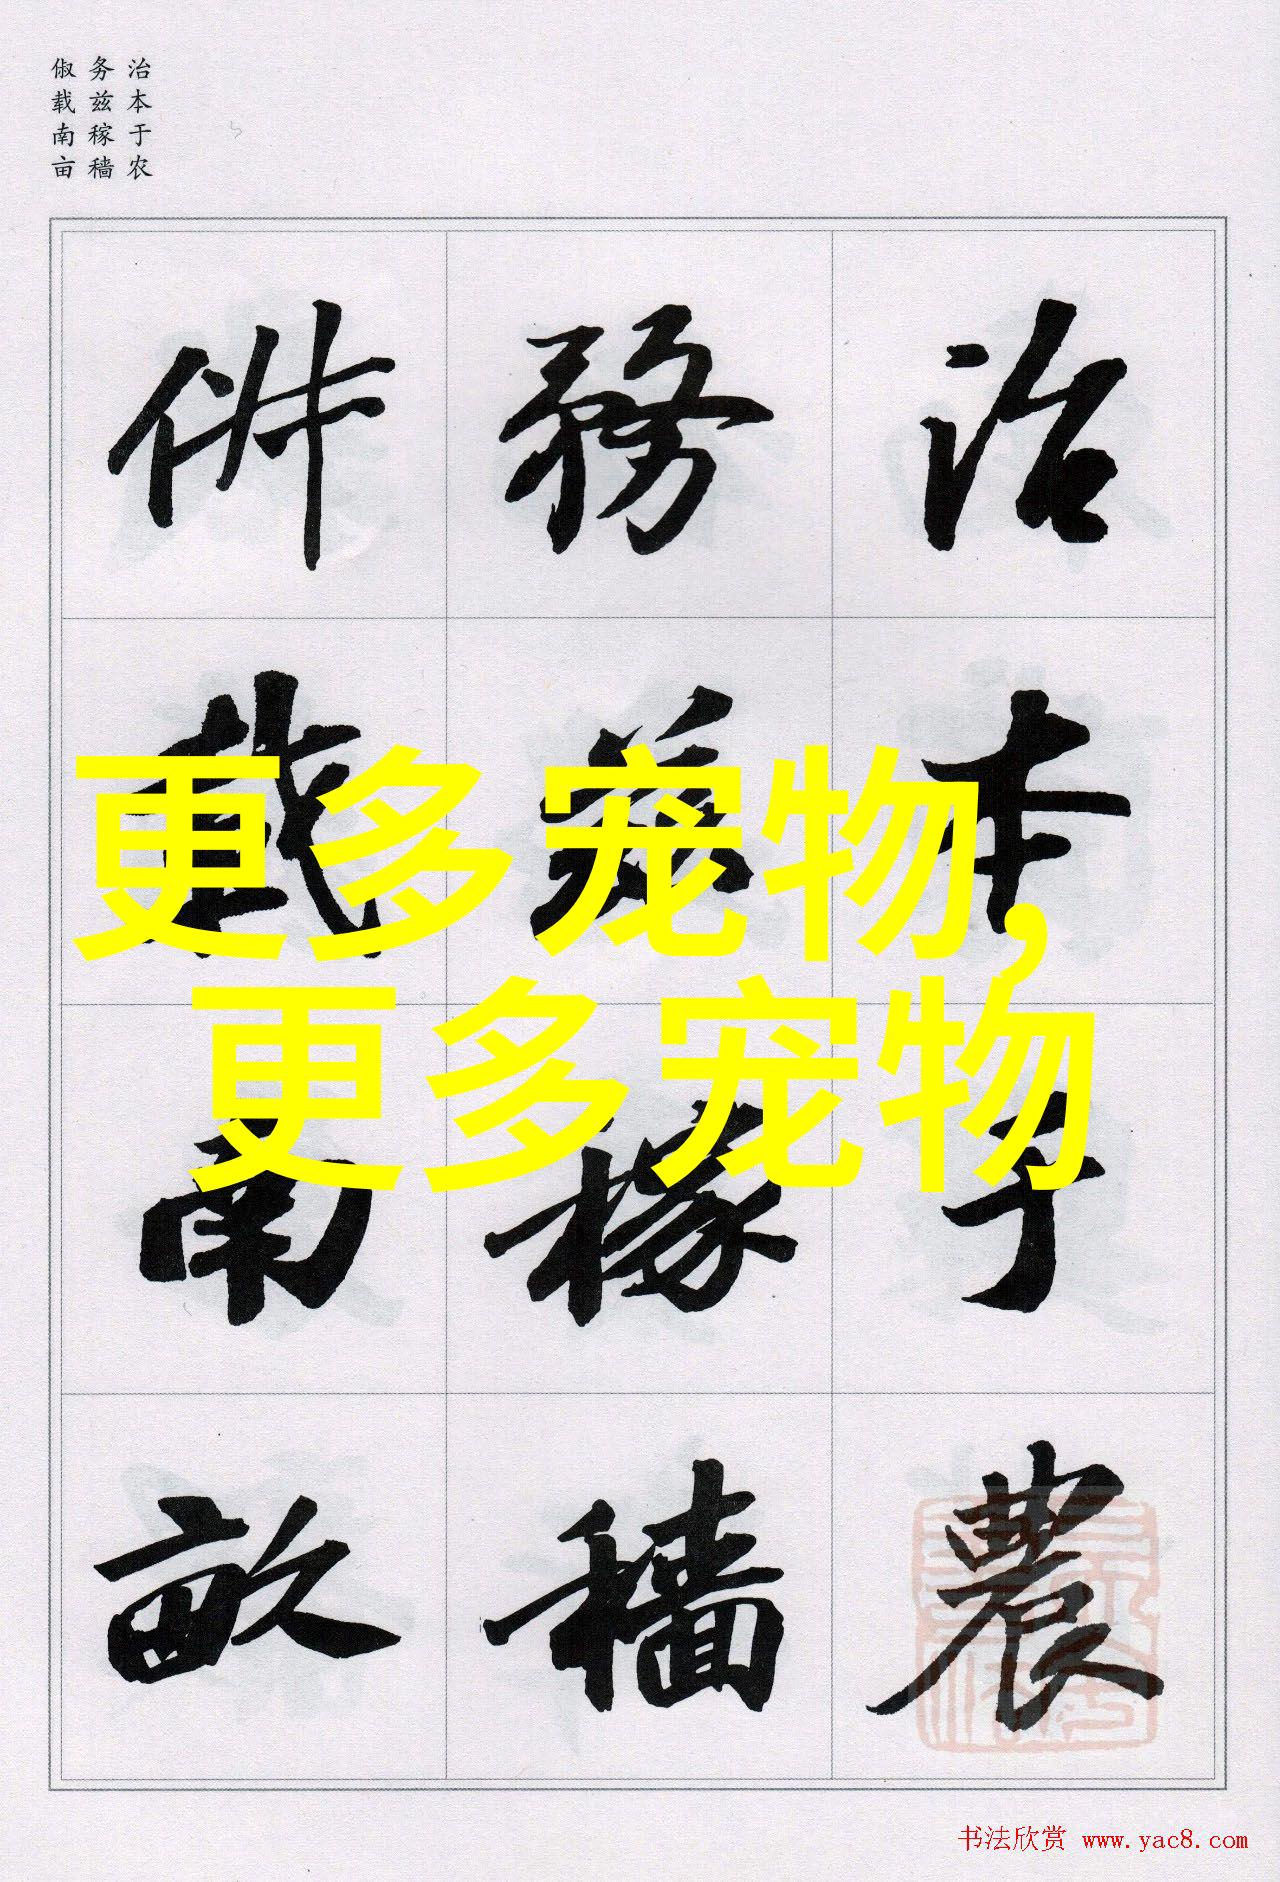 治本于农
务兹稼穑
俶载南亩
治本于農
務兹稼穡
俶載南畝
更多宠物，
更多宠物
书法欣赏 www.yac8.com